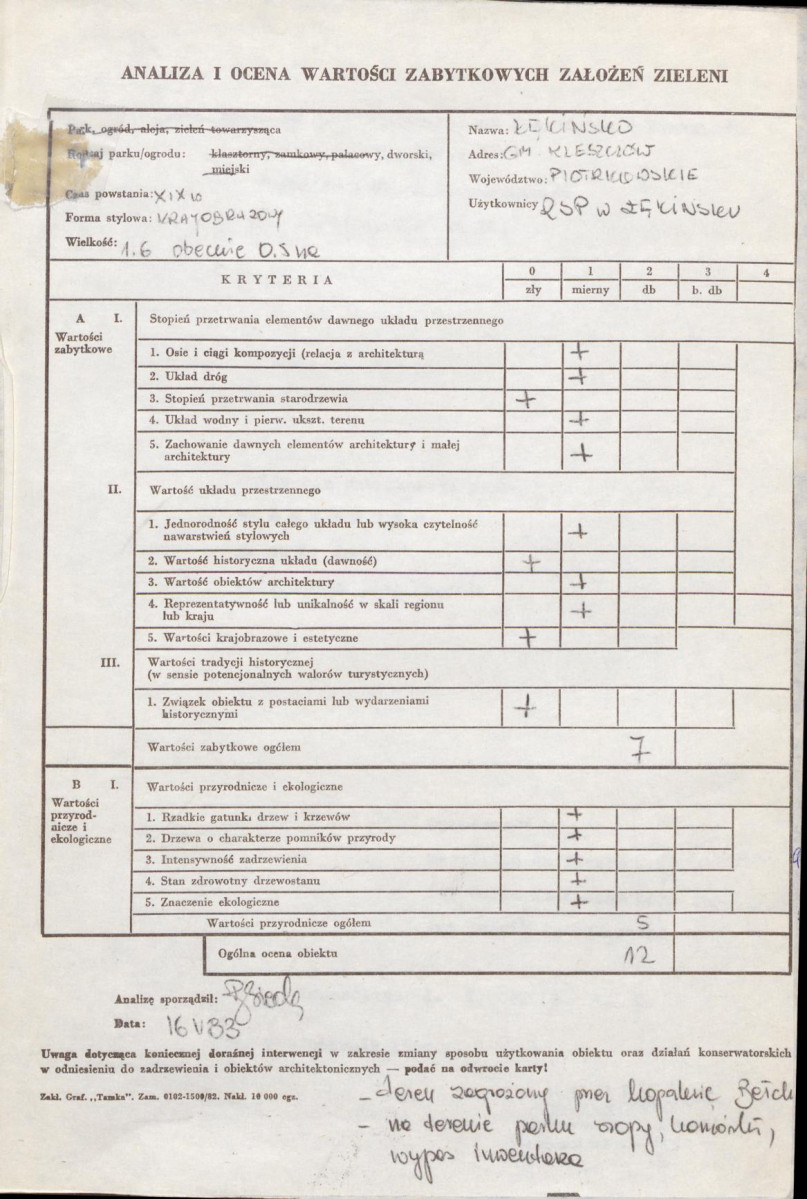 ANALIZA I OCENA WARTOŚCI ZABYTKOWYCH ZAŁOŻEŃ ZIELENI
Park, ogród, aleja, zieleń towarzysząca
Rodzaj parku/ogrodu: klasztorny, zamkowy, pałacowy, dworski,
miejski
Czas powstania: XIX w
Forma stylowa: KRAJOBRAZOWY
Wielkość: 1.6 obecnie 0.5 ha
Nazwa: ŁĘKIŃSKO
Adres: GM. KLESZCZÓW
Województwo: PIOTRKOWSKIE
Użytkownicy RSP W ŁĘKIŃSKU
KRYTERIA
0 1 2 3 4
zły mierny db b. db
A I. Stopień przetrwania elementów dawnego układu przestrzennego
Wartości
zabytkowe
1. Osie i ciągi kompozycji (relacja z architekturą +
2. Układ dróg +
3. Stopień przetrwania starodrzewia +
4. Układ wodny i pierw. ukszt. terenu +
5. Zachowanie dawnych elementów architektury i małej
architektury +
II. Wartość układu przestrzennego
1. Jednorodność stylu całego układu lub wysoka czytelność
nawarstwień stylowych +
2. Wartość historyczna układu (dawność) +
3. Wartość obiektów architektury +
4. Reprezentatywność lub unikalność w skali regionu
lub kraju +
5. Wartości krajobrazowe i estetyczne +
III. Wartości tradycji historycznej
(w sensie potencjonalnych walorów turystycznych)
1. Związek obiektu z postaciami lub wydarzeniami
historycznymi +
Wartości zabytkowe ogółem 7
B I. Wartości przyrodnicze i ekologiczne
Wartości
przyrod-
nicze i
ekologiczne
1. Rzadkie gatunki drzew i krzewów +
2. Drzewa o charakterze pomników przyrody +
3. Intensywność zadrzewienia +
4. Stan zdrowotny drzewostanu +
5. Znaczenie ekologiczne +
Wartości przyrodnicze ogółem 5
Ogólna ocena obiektu 12
Analizę sporządził:
Data: 16 V 83
Uwaga dotycząca koniecznej doraźnej interwencji w zakresie zmiany sposobu użytkowania obiektu oraz działań konserwatorskich
w odniesieniu do zadrzewienia i obiektów architektonicznych — podać na odwrocie karty!
Zakł. Graf. „Tamka". Zam. 0102-1500/82. Nakł. 10 000 egz.
- teren zagrożony przez kopalnię Bełch
- na terenie parku szopy, komórki,
wypas inwentarza